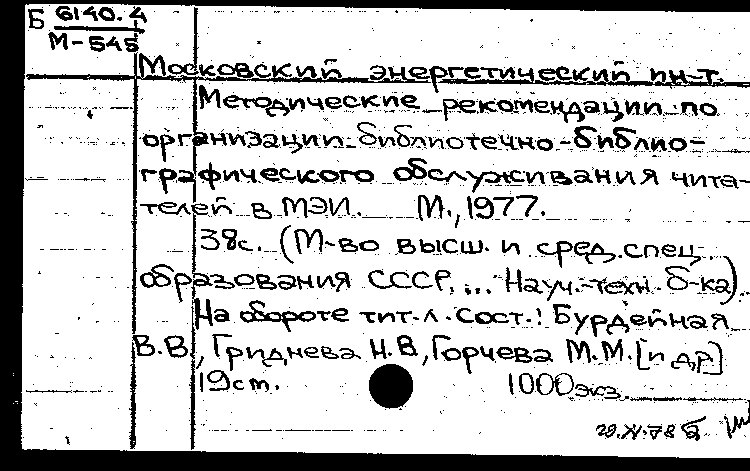 Б 6140.4
М-545
Московский энергетический ин-т.
Методические рекомендации по
организации библиотечно-библио-
графического обслуживания чита-
телей в МЭИ. М., 1977.
38с. (М-во высш. и сред. спец.
образования СССР, ... Науч.-техн. б-ка)
На обороте тит. л. сост.: Бурдейная
В.В., Гриднева Н.В., Горчева М.М. [и др]
19cm. 1000экз.